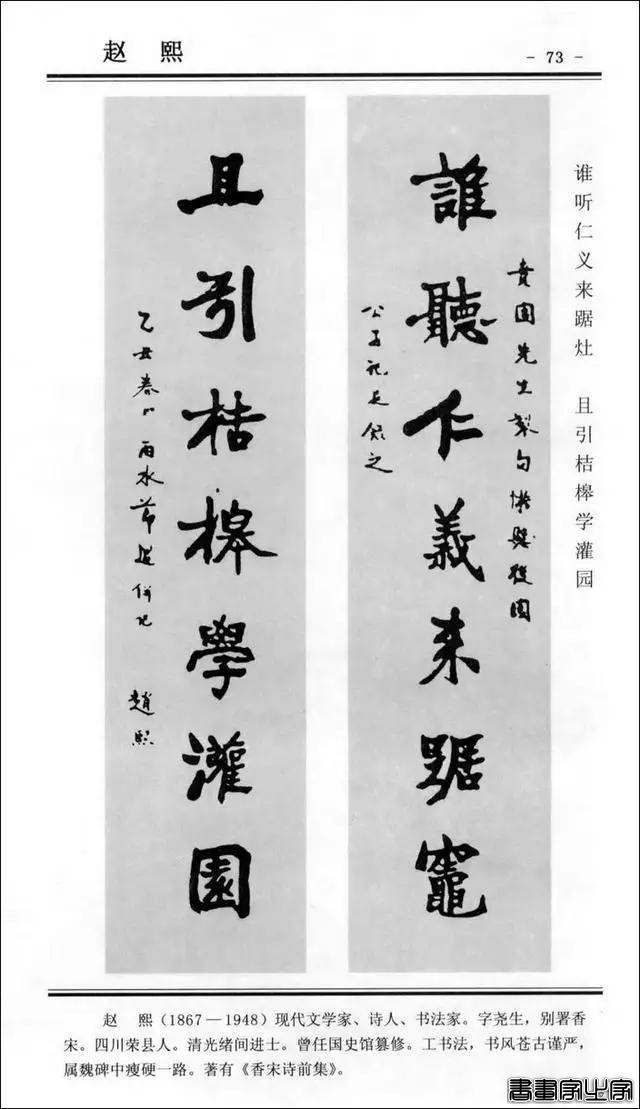 赵 熙
- 73 -
谁听仁义来踞灶 且引桔槔学灌园
賁園先生製句
誰聽仁義来踞竈
公子 之
且引桔槔學灌園
乙丑春 雨水節 併記 趙熙
赵 熙(1867—1948)现代文学家、诗人、书法家。字尧生,别署香
宋。四川荣县人。清光绪间进士。曾任国史馆纂修。工书法,书风苍古谨严,
属魏碑中瘦硬一路。著有《香宋诗前集》。
書畫家